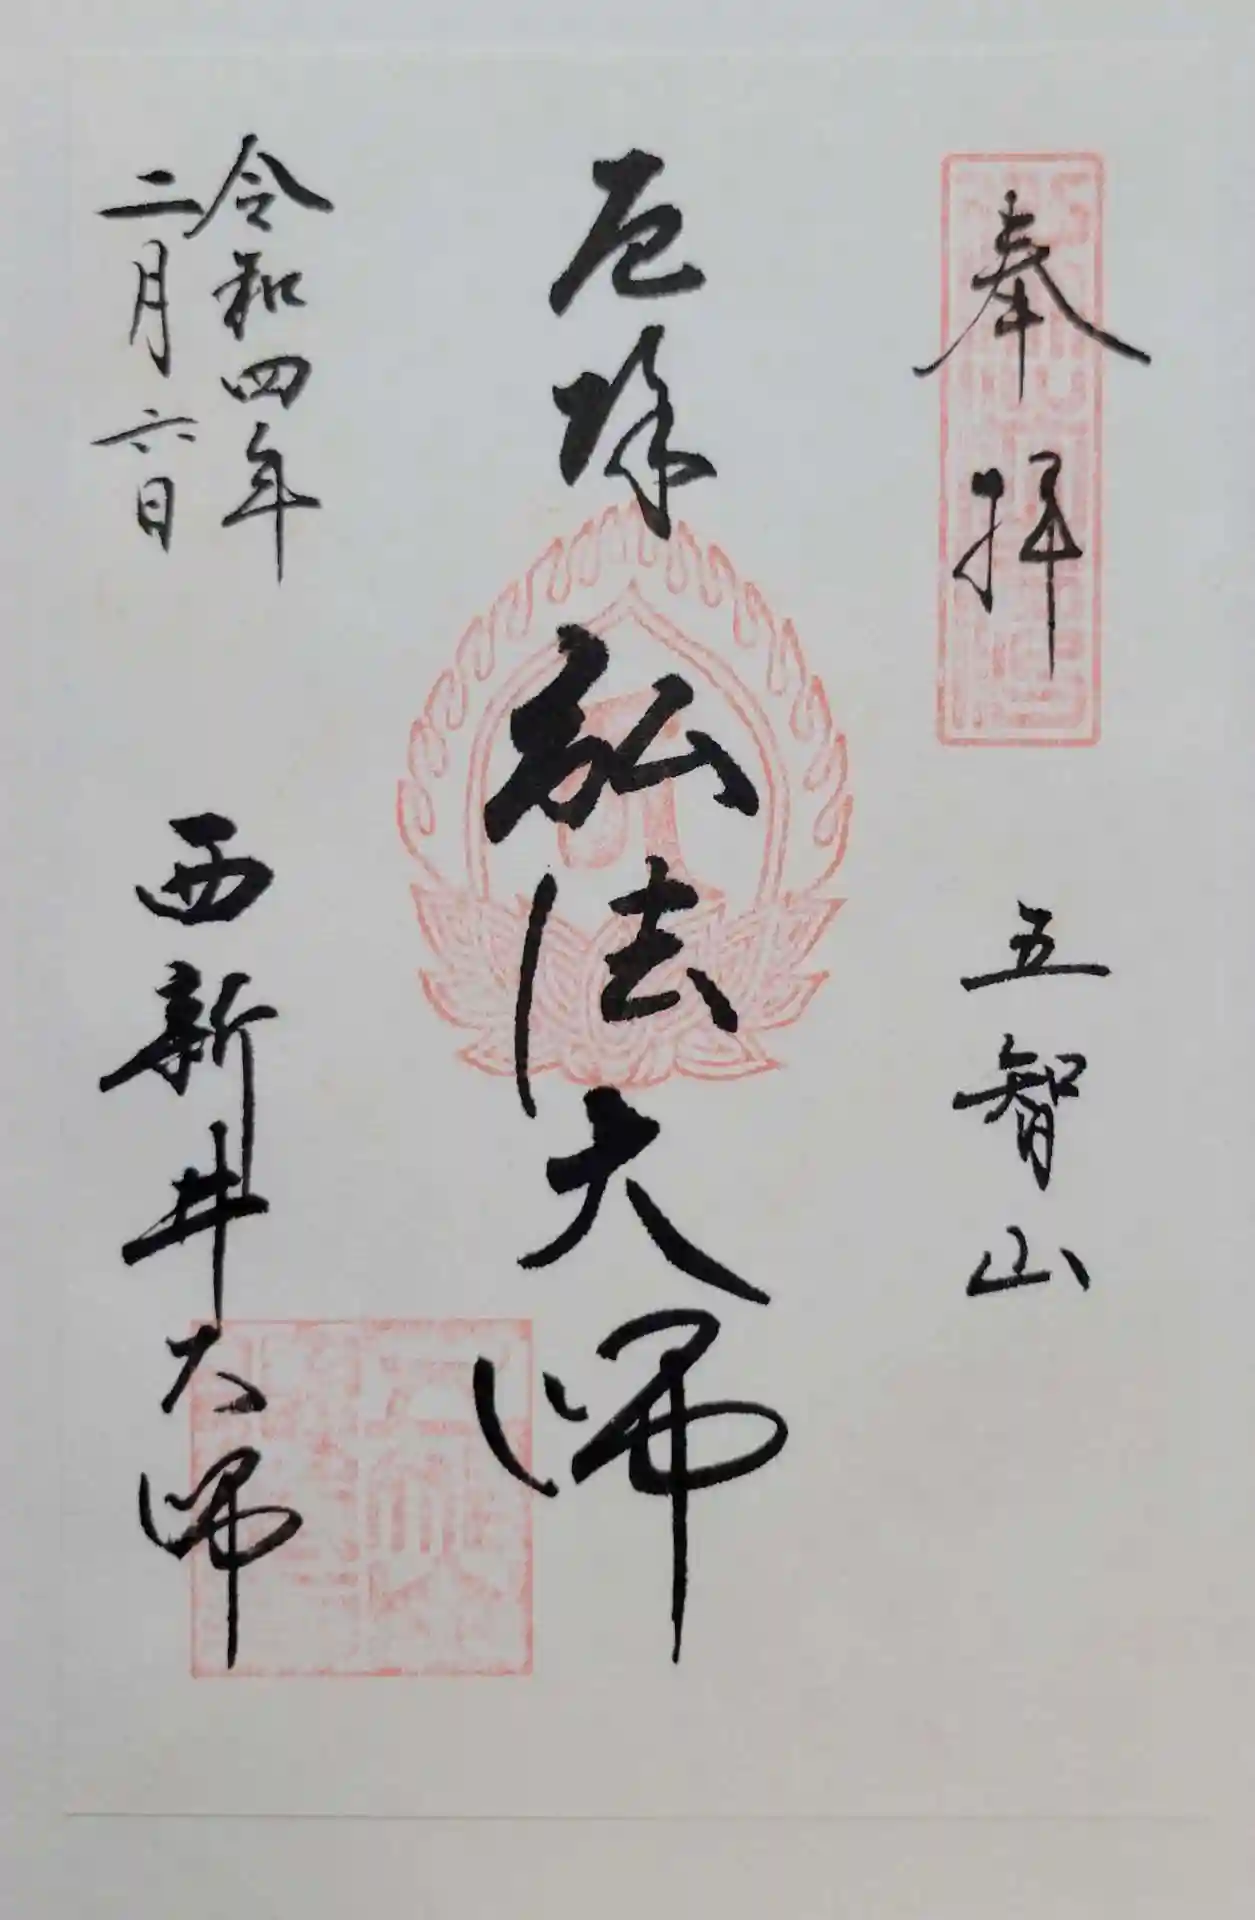 奉拝
五智山
厄除
弘法大師
令和四年
二月六日
西新井大師